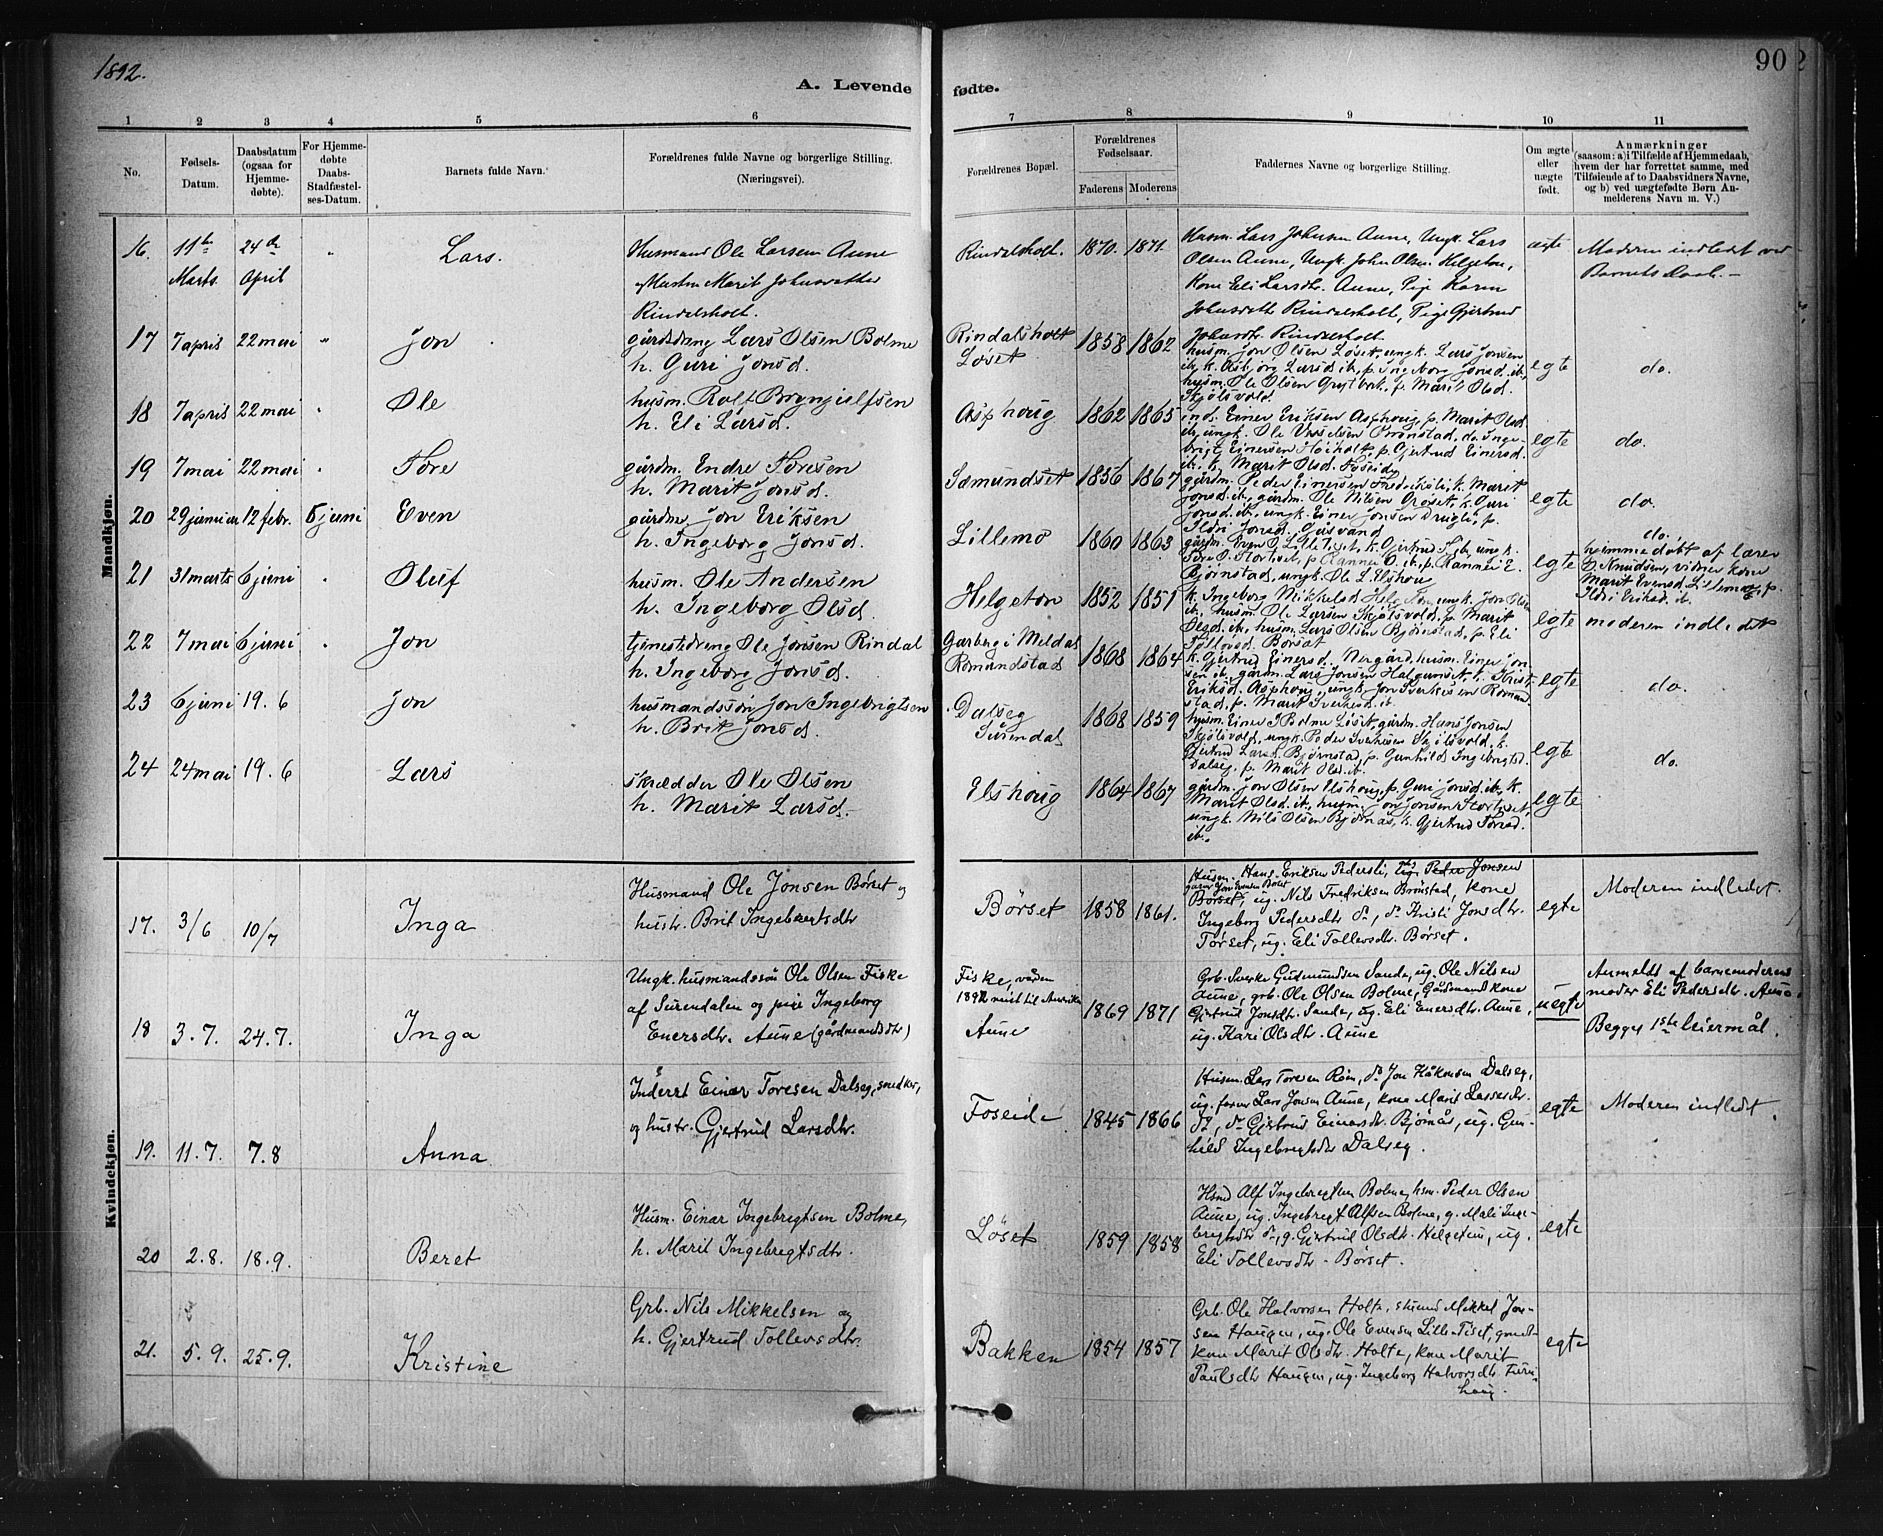 1892.
A. Levende
fødte.
90
1 2 3 4 5 6 7 8 9 10 11
No.
Fødsels-Datum.
Daabsdatum (ogsaa for Hjemmedøbte).
For Hjemmedøbte Daabs-Stadfæstelses-Datum.
Barnets fulde Navn.
Forældrenes fulde Navne og borgerlige Stilling.
(Næringsvei).
Forældrenes Bopæl.
Forældrenes Fødselsaar.
Faderens Moderens
Faddernes Navne og borgerlige Stilling.
Om ægte eller uægte født.
Anmærkninger
(saasom: a) i Tilfælde af Hjemmedaab,
hvem der har forrettet samme, med
Tilføiende af to Daabsvidners Navne,
og b) ved uægtefødte Børn Anmelderens Navn m. V.)
Mandkjøn.
16. 11te Marts. 24de April " Lars.
Husmand Ole Larsen Aune
Marit Johnsdatter
Rindalsholt.
Rindalsholt. 1870. 1871.
Husm. Lars Johnsen Aune, Ungk. Lars
Olsen Aune, Ungk. John Olsen Helgetun,
Kone Eli Larsdtr. Aune, Pige Karen
Johnsdatter Rindalsholt, Pige Gjertrud
Johnsdtr. Rindalsholt.
ægte
Moderen indledt ved
Barnets Daab.
17 7 april 22 mai " Jon
gårddreng Lars Olsen Bolme
h. Guri Jonsd.
Rindalsholt
Løset 1858 1862
husm. Jon Olsen Løset, ungk. Lars Jonsen
ib, k. Asbjørg Larsd. ib., p. Ingeborg Jonsd. ib.,
husm. Ole Olsen, p. Marit Olsd.
Skjølsvold.
egte do.
18 7 april 22 mai " Ole
husm. Rolf Brynjulfsen
h. Eli Larsd.
Asphoug 1862 1865
ind. Einer Eriksen Asphoug, p. Marit Olsd.
ib, ungk. Ole Brønstad, do. Inge-
brigt Einersen Høiholt, p. Gjertrud Einersd.
ib., k. Marit Olsd. Foseide
egte do.
19 7 mai 22 mai " Tore
gårdm. Endre Toresen
h. Marit Jonsd.
1856 1867
gårdm. Peder Einersen, k. Marit
Jonsd. ib., gårdm. Ole Nilsen, k. Guri
Jonsd. ib., ungk. Einer Jonsen, p.
Ildri Jonsd.
egte do.
20 29 januar 12 febr. 6 juni Even
gårdm. Jon Eriksen
h. Ingeborg Jonsd.
Lillemo 1860 1863
gårdm. Even O. Lilletiset, k. Gjertrud
Bjørnstad, ungk. Ole L. Elshou
egte do.
hjemmedøbt af lærer
Knudsen, vidner kone
Marit Evensd. Lillemo, p.
Ildri Eriksd. ib.
21 31 marts 6 juni " Oluf
husm. Ole Andersen
h. Ingeborg Olsd.
Helgeton 1852 1851
k. Ingeborg Mikkelsd. Helgeton, ungk. Jon Olsen
ib., husm. Ole Larsen Skjølsvold, p. Marit
Olsd. ib., husm. Lars Olsen Bjørnstad, p. Eli
Tollevsd. Børset
egte moderen indledet
22 7 mai 6 juni " Jon
tjenestedreng Ole Jonsen Rindal
h. Ingeborg Jonsd.
Garberg i Meldal
Romundstad 1868 1864
k. Gjertrud Einersd. Nergård, husm. Einer Jon-
sen ib., gårdm. Lars Jonsen, k. Kristi
Eriksd. Asphoug, ungk. Jon Sverkesen Romund-
stad, p. Marit Sverkesd. ib.
egte do.
23 6 juni 19. 6 Jon
husmandssøn Jon Ingebrigtsen
h. Brit Jonsd.
Dalseg
Surendal 1868 1859
husm. Einer I. Bolme Løset, gårdm. Hans Jonsen
Skjølsvold, ungk. Peder Sverkesen Skjølsvold, k.
Gjertrud Larsd. Bjørnstad, p. Gunhild Ingebrigtsd.
Dalseg, p. Marit Olsd. ib.
egte do.
24 24 mai 19. 6 Lars
skrædder Ole Olsen
h. Marit Larsd.
Elshoug 1864 1867
gårdm. Jon Olsen Elshoug, p. Guri Jonsd. ib., k.
Marit Olsd. ib., husm. Jon Jonsen Stortiset,
ungk. Nils Olsen Bjørnås, k. Gjertrud Toresd.
ib.
egte
Kvindekjøn.
17. 3/6 10/7 Inga
Husmand Ole Jonsen Børset og
hustr. Brit Ingebretsdtr
Børset 1858 1861.
Husm. Hans Eriksen Pedersli, Ug. Peder Jonsen
Børset, ug. Nils Fredriksen Brønstad, kone
Ingeborg Pedersdtr do, do Kristi Jonsdtr.
Tørset, ug. Eli Tollevsdtr. Børset.
egte Moderen indledet.
18 3. 7. 24. 7. Inga
Ungk. husmandssøn Ole Olsen Fiske
af Surendalen og pige Ingeborg
Enersdtr. Aune (gårdmandsdtr)
Fiske, våren
1892 reist til Amerika
Aune 1869 1871
Grb. Sverke Gudmundsen Sande, ug. Ole Nilsen
Aune, grb. Ole Olsen Bolme, Gårdmandkone
Gjertrud Jonsdtr. Sande, ug. Eli Enersdtr. Aune,
ug. Kari Olsdtr. Aune
uegte
Anmeldt af barnemoderens
moder Eli Pedersdtr. Aune.
Begges 1ste leiermål.
19. 11. 7. 7. 8 Anna
Inderst Einar Toresen Dalseg, snedker,
og hustr. Gjertrud Larsdtr.
Foseide 1845 1866
Husm. Lars Toresen Røen, do Jon Håkonsen Dalseg,
ug. farver Lars Jonsen Aune, kone Marit Larsdtr.
do, do Gjertrud Einersdtr. Bjørnås, ug. Gun-
hild Ingebrigtsdtr Dalseg.
egte Moderen indledt.
20 2. 8. 18. 9. Beret
Husm. Einar Ingebrigtsen Bolme,
h. Marit Ingebregtsdtr.
Løset 1859 1858
Hsmd Alf Ingebregtsen Bolme, hsm. Peder Olsen
Aune, ug. Ingebregt Alfsen Bolme, g. Mali Inge-
bregtsdtr do, g. Gjertrud Olsdtr. Helgetun, ug.
Eli Tollevsdtr. Børset.
egte
21. 5. 9. 25. 9. Kristine
Grb. Nils Mikkelsen og
h. Gjertrud Tollevsdtr.
Bakken 1854 1857
Grb. Ole Halvorsen Holte, Mikkel Jon-
sen Haugen, ug. Ole Evensen Lilletiset, gmds-
kone Marit Olsdtr. Holte, kone Marit
Paulsdtr Haugen, ug. Ingeborg Halvorsdtr. Furu-
haug.
egte